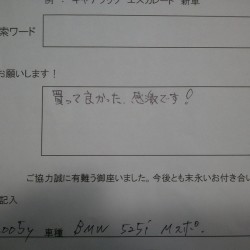 例: キャデラック エスカレード 新車
索ワード
お願いします!
買って良かった、感激です!
ご協力誠に有難う御座いました。今後とも末永いお付き合い
記入
005y 車種 BMW 525i Mスポ.